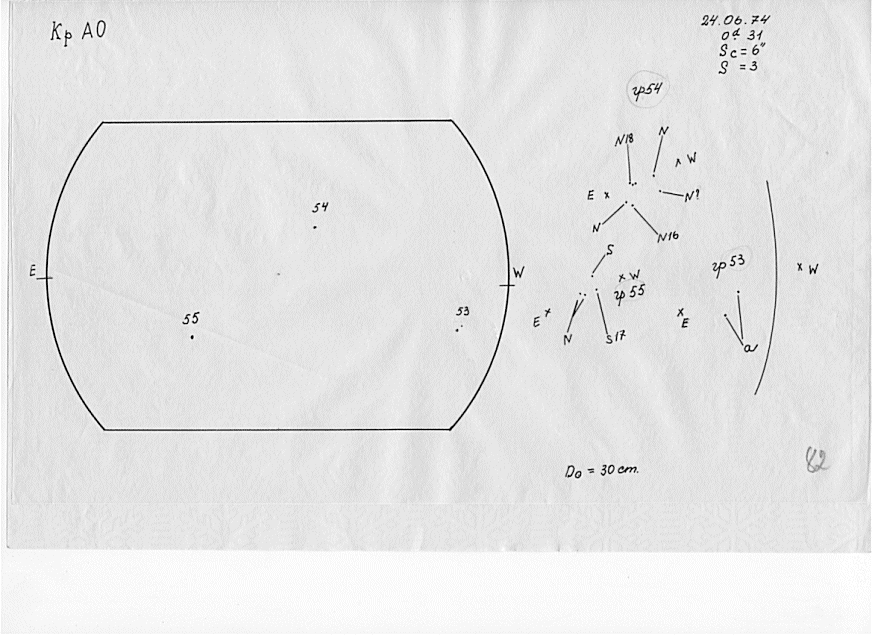 Кр АО
24.06.74
0ᵈ 31
Sc = 6"
S = 3
гр54
N18
N
W
E
N?
N
N16
54
S
E
W
гр 53
W
W
гр 55
55
53
E
E
N
S17
a
D⊙ = 30 cm.
82